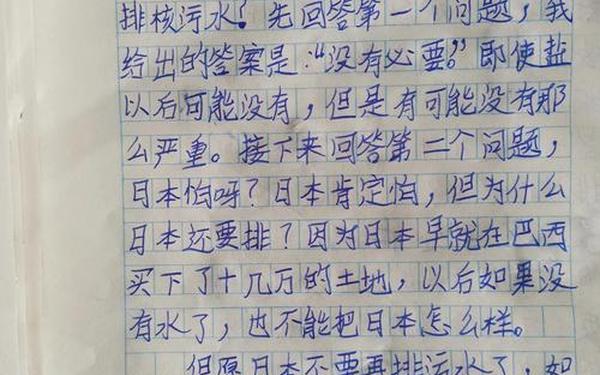 排核污水！先回答第一个问题，我
给出的答案是：“没有必要。”即使盐
以后可能没有，但是有可能没有那
么严重。接下来回答第二个问题，
日本怕呀？日本肯定怕，但为什么
日本还要排？因为日本早就在巴西
买下了十几万的土地，以后如果没
有水了，也不能把日本怎么样。
但愿日本不要再排污水了，如